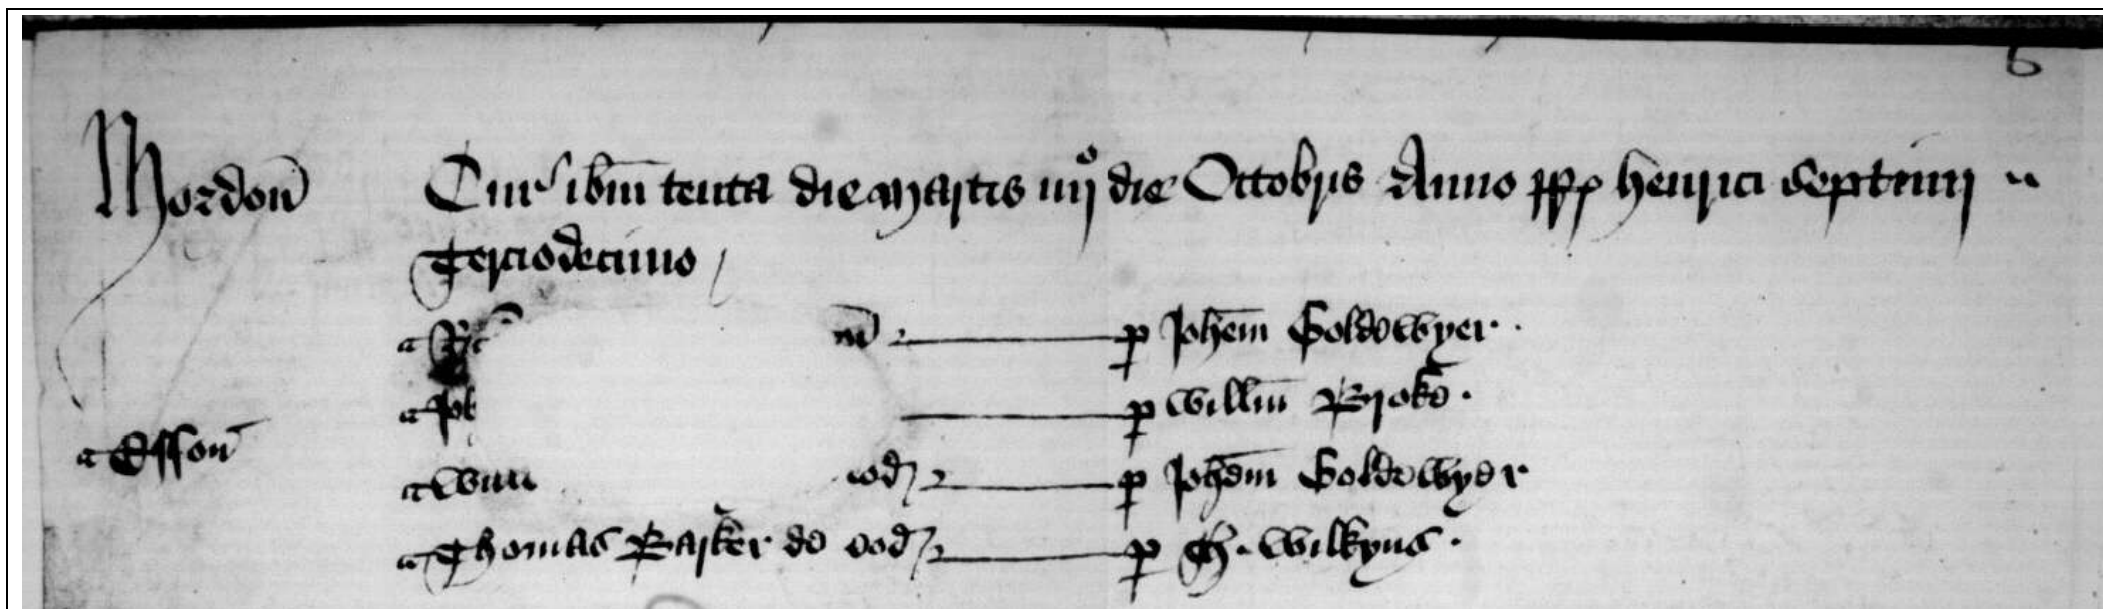 6
Mordon̄ Cur' ib̄m tenta die Martis iiijº die Octobris Anno RR henrici septimi
Terciodecimo
Ric̄ m̄ p Joh̄em Goldewyer
Joh p Will̄m Broke
Esson̄
Will eod p Joh̄em Goldewyer
Thomas Barker de eod p Th. Wilkyns